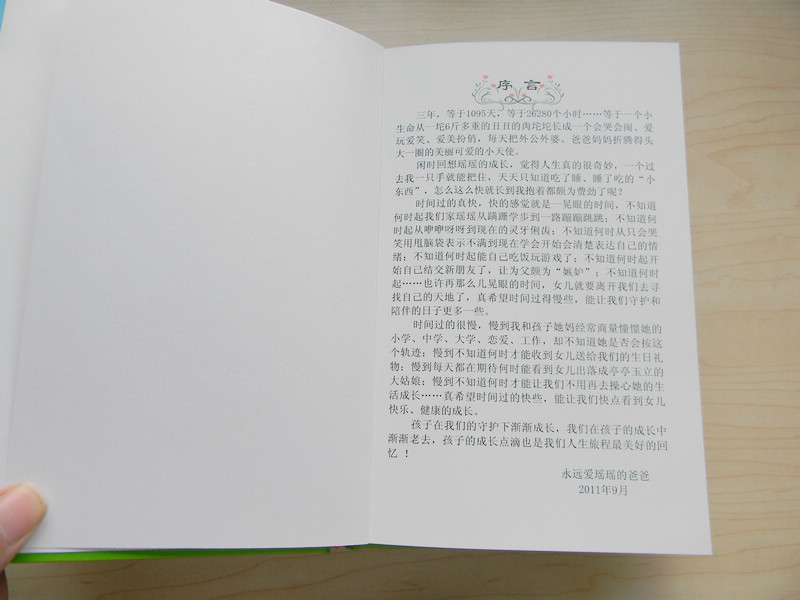 序 言
三年，等于1095天，等于26280个小时……等于一个小
生命从一坨6斤多重的丑丑的肉坨坨长成一个会哭会闹、爱
玩爱笑、爱美扮俏，每天把外公外婆、爸爸妈妈折腾得头
大一圈的美丽可爱的小天使。
闲时回想瑶瑶的成长，觉得人生真的很奇妙，一个过
去我一只手就能把住，天天只知道吃了睡、睡了吃的“小
东西”，怎么这么快就长到我抱着都颇为费劲了呢？
时间过的真快，快的感觉就是一晃眼的时间，不知道
何时起我们家瑶瑶从蹒跚学步到一路蹦蹦跳跳；不知道何
时起从咿咿呀呀到现在的灵牙俐齿；不知道何时从只会哭
笑用甩脑袋表示不满到现在学会开始会清楚表达自己的情
绪；不知道何时起能自己吃饭玩游戏了；不知道何时起开
始自己结交新朋友了，让为父颇为“嫉妒”；不知道何时
起……也许再那么几晃眼的时间，女儿就要离开我们去寻
找自己的天地了，真希望时间过得慢些，能让我们守护和
陪伴的日子更多一些。
时间过的很慢，慢到我和孩子她妈经常商量憧憬她的
小学、中学、大学、恋爱、工作，却不知道她是否会按这
个轨迹；慢到不知道何时才能收到女儿送给我们的生日礼
物；慢到每天都在期待何时能看到女儿出落成亭亭玉立的
大姑娘；慢到不知道何时才能让我们不用再去操心她的生
活成长……真希望时间过的快些，能让我们快点看到女儿
快乐、健康的成长。
孩子在我们的守护下渐渐成长，我们在孩子的成长中
渐渐老去，孩子的成长点滴也是我们人生旅程最美好的回
忆！
永远爱瑶瑶的爸爸
2011年9月